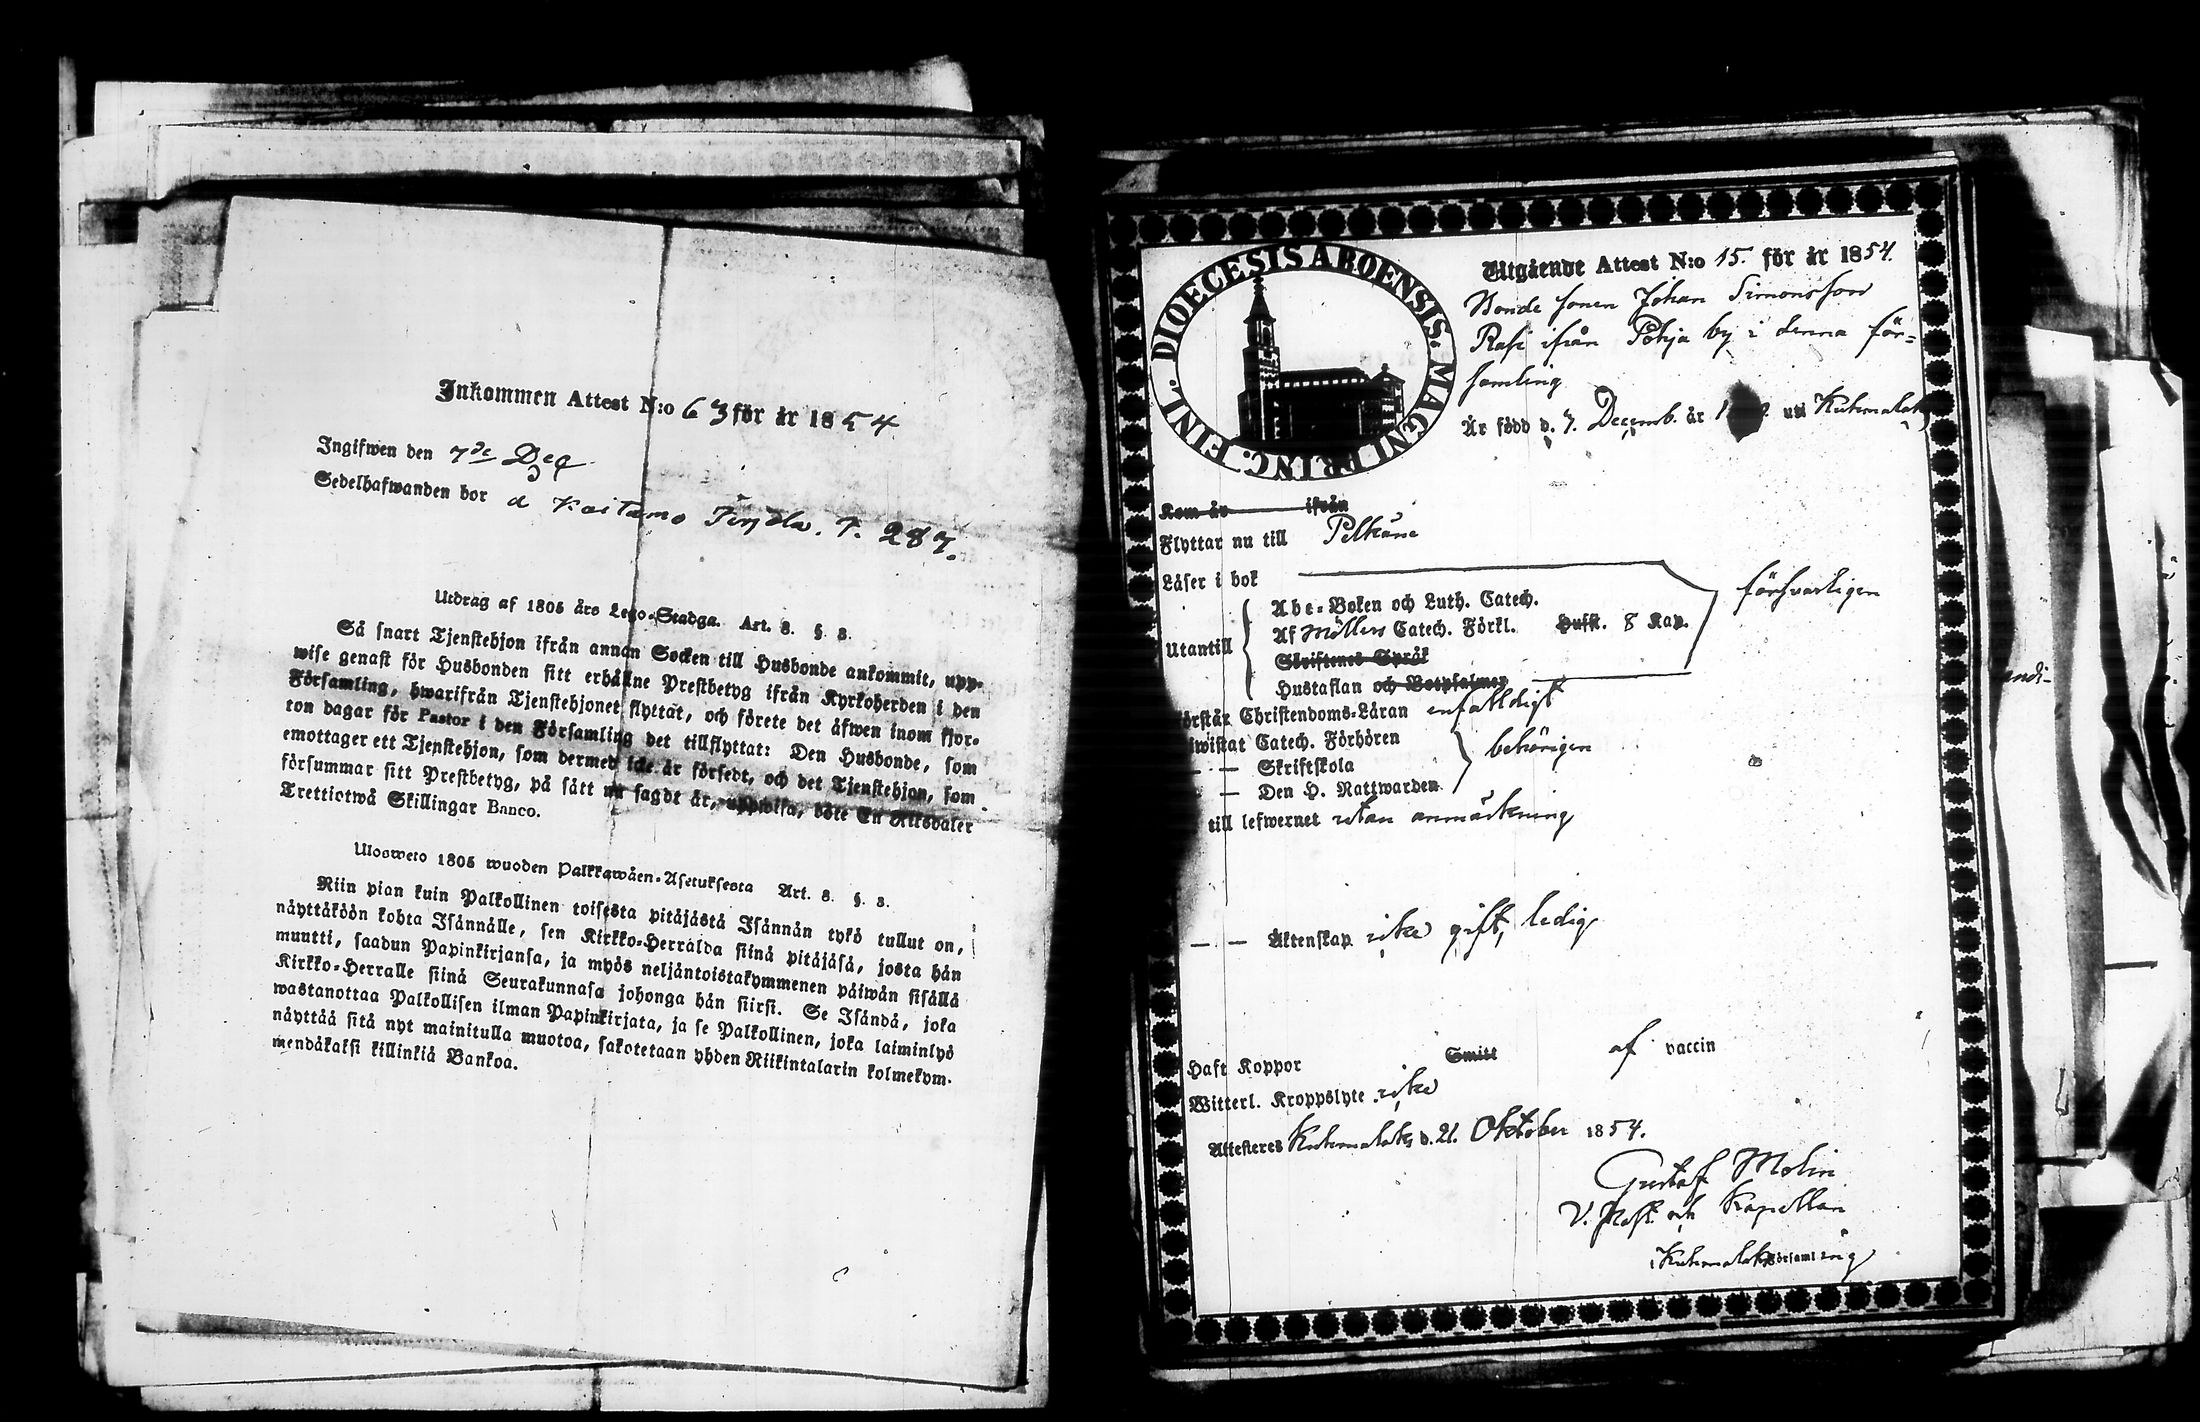 Inkommen Attest N:o 63 för år 1854.
Ingifwen den 7de Dec
Sedelhafwanden bor å Kaitamo p. 287.
Utdrag af 1805 års Lego-Stadga. Art. 8. §. 3.
Så snart Tjenstehjon ifrån annan Socken till Husbonde ankommit, upp-
wise genast för Husbonden sitt erhållne Prestbetyg ifrån Kyrkoherden i den
Församling, hwarifrån Tjenstehjonet flyttat, och förete det äfwen inom fjor-
ton dagar för Pastor i den Församling det tillflyttat: Den Husbonde, som
emottager ett Tjenstehjon, som dermed icke är försedt, och det Tjenstehjon, som
försummar sitt Prestbetyg, på sätt nu sagdt är, uppwisa, böte En Riksdaler
Trettiotwå Skillingar Banco.
Ulosweto 1805 wuoden Palkkawäen-Asetuksesta Art. 8. §. 3.
Niin pian kuin Palkollinen toisesta pitäjästä Isännän tykö tullut on,
näyttäköön kohta Isännälle, sen Kirkko-Herralda siinä pitäjäsä, josta hän
muutti, saadun Papinkirjansa, ja myös neljäntoistakymmenen päiwän sisällä
Kirkko-Herralle siinä Seurakunnasa johonga hän siirsi. Se Isändä, joka
wastanottaa Palkollisen ilman Papinkirjata, ja se Palkollinen, joka laiminlyö
näyttää sitä nyt mainitulla muotoa, sakotetaan yhden Riikintalarin kolmekym-
mendäkaksi killinkiä Bankoa.
DIOECESIS ABOENSIS. MAGNI PRINC. FINL.
Utgående Attest N:o 15. för år 1854.
Bonde sonen Johan Simonsson
Rasi ifrån Pohja by i denna för=
samling
Är född d. 7. Decemb. år 1 uti Kuhmalaks
Kom år ifrån
Flyttar nu till Pelkäne
Läser i bok försvarligen
Utantill
Abc-Boken och Luth. Catech.
Af Möllers Catech. Förkl. Hufst. 8 Kap.
Skriftenes Språk
Hustaflan och Botpsalmer
örstår Christendoms-Läran enfaldigt
wistat Catech. Förhören
— — Skriftskola behörigen
— Den H. Nattwarden
till lefwernet utan anmärkning
— — Äktenskap icke gift, ledig
Haft Koppor Smitt af vaccin
Witterl. Kroppslyte icke
Attesteres Kuhmalaks d. 21. Oktober 1854.
Gustaf Molin
V. Past. och Kapellan
i Kuhmalaks Församling